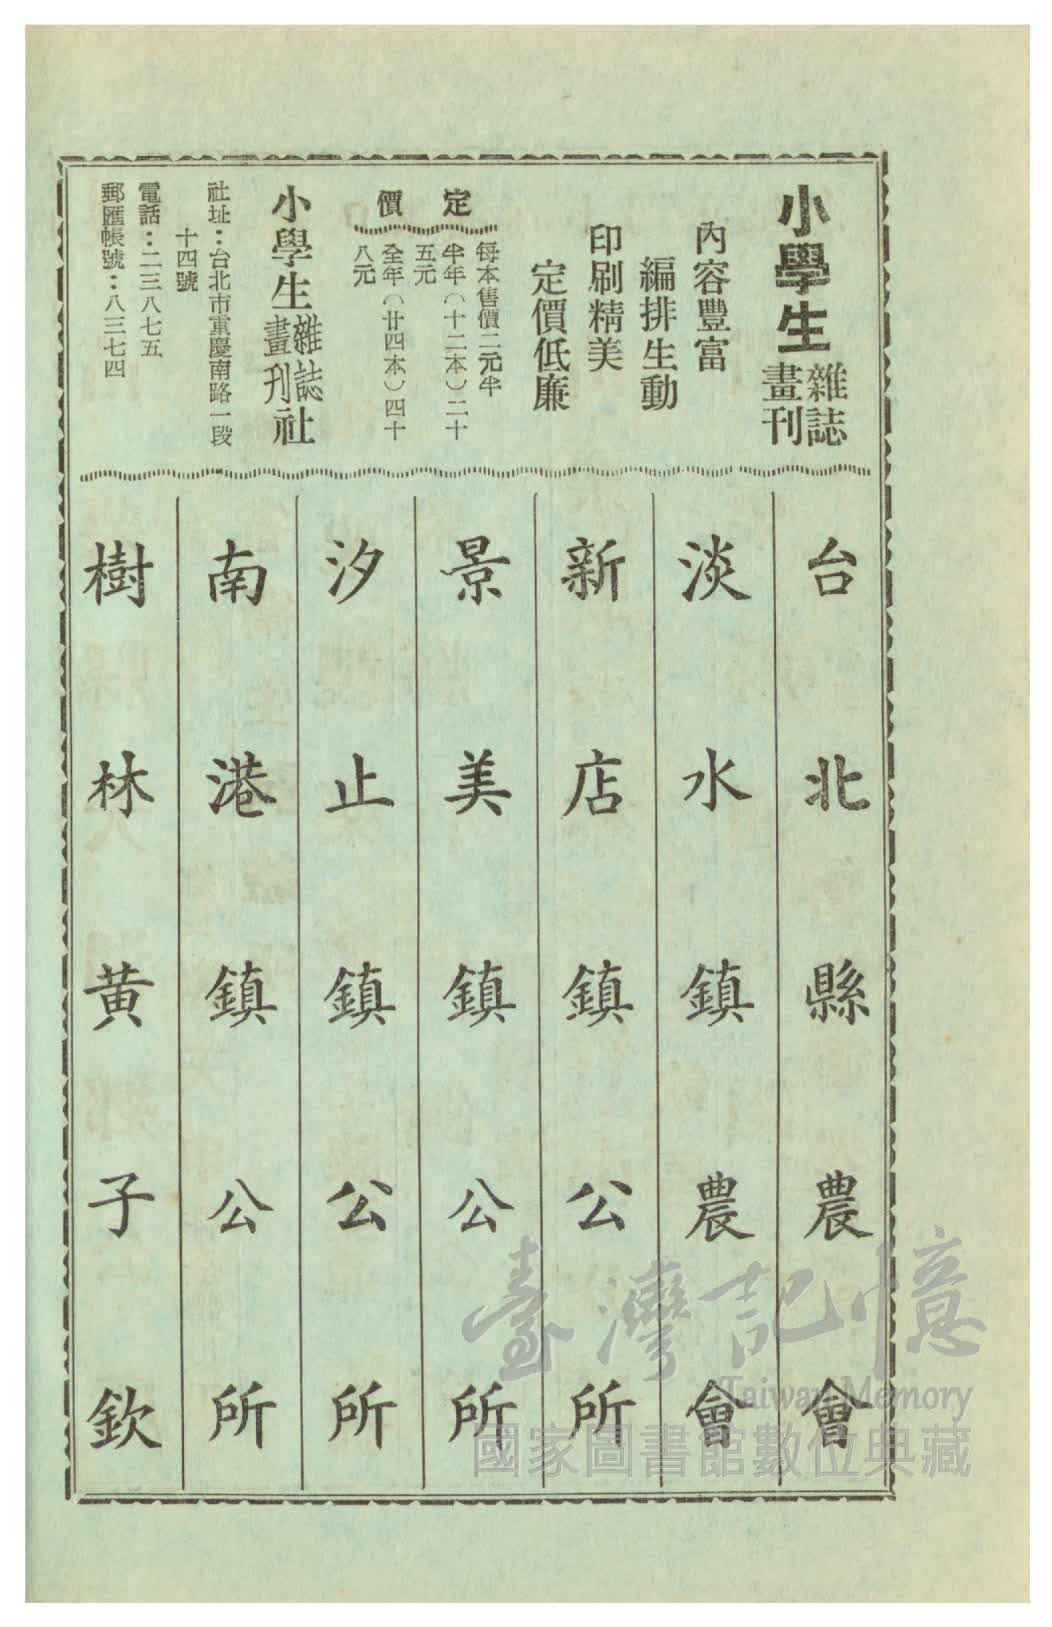 小學生雜誌畫刊
內容豐富
編排生動
印刷精美
定價低廉
定價
每本售價二元半
半年(十二本)二十五元
全年(廿四本)四十八元
小學生雜誌畫刊社
社址:台北市重慶南路一段十四號
電話:二三八七五
郵匯帳號:八三七四
台北縣農會
淡水鎮農會
新店鎮公所
景美鎮公所
汐止鎮公所
南港鎮公所
樹林黃子欽
臺灣記憶
Taiwan Memory
國家圖書館數位典藏